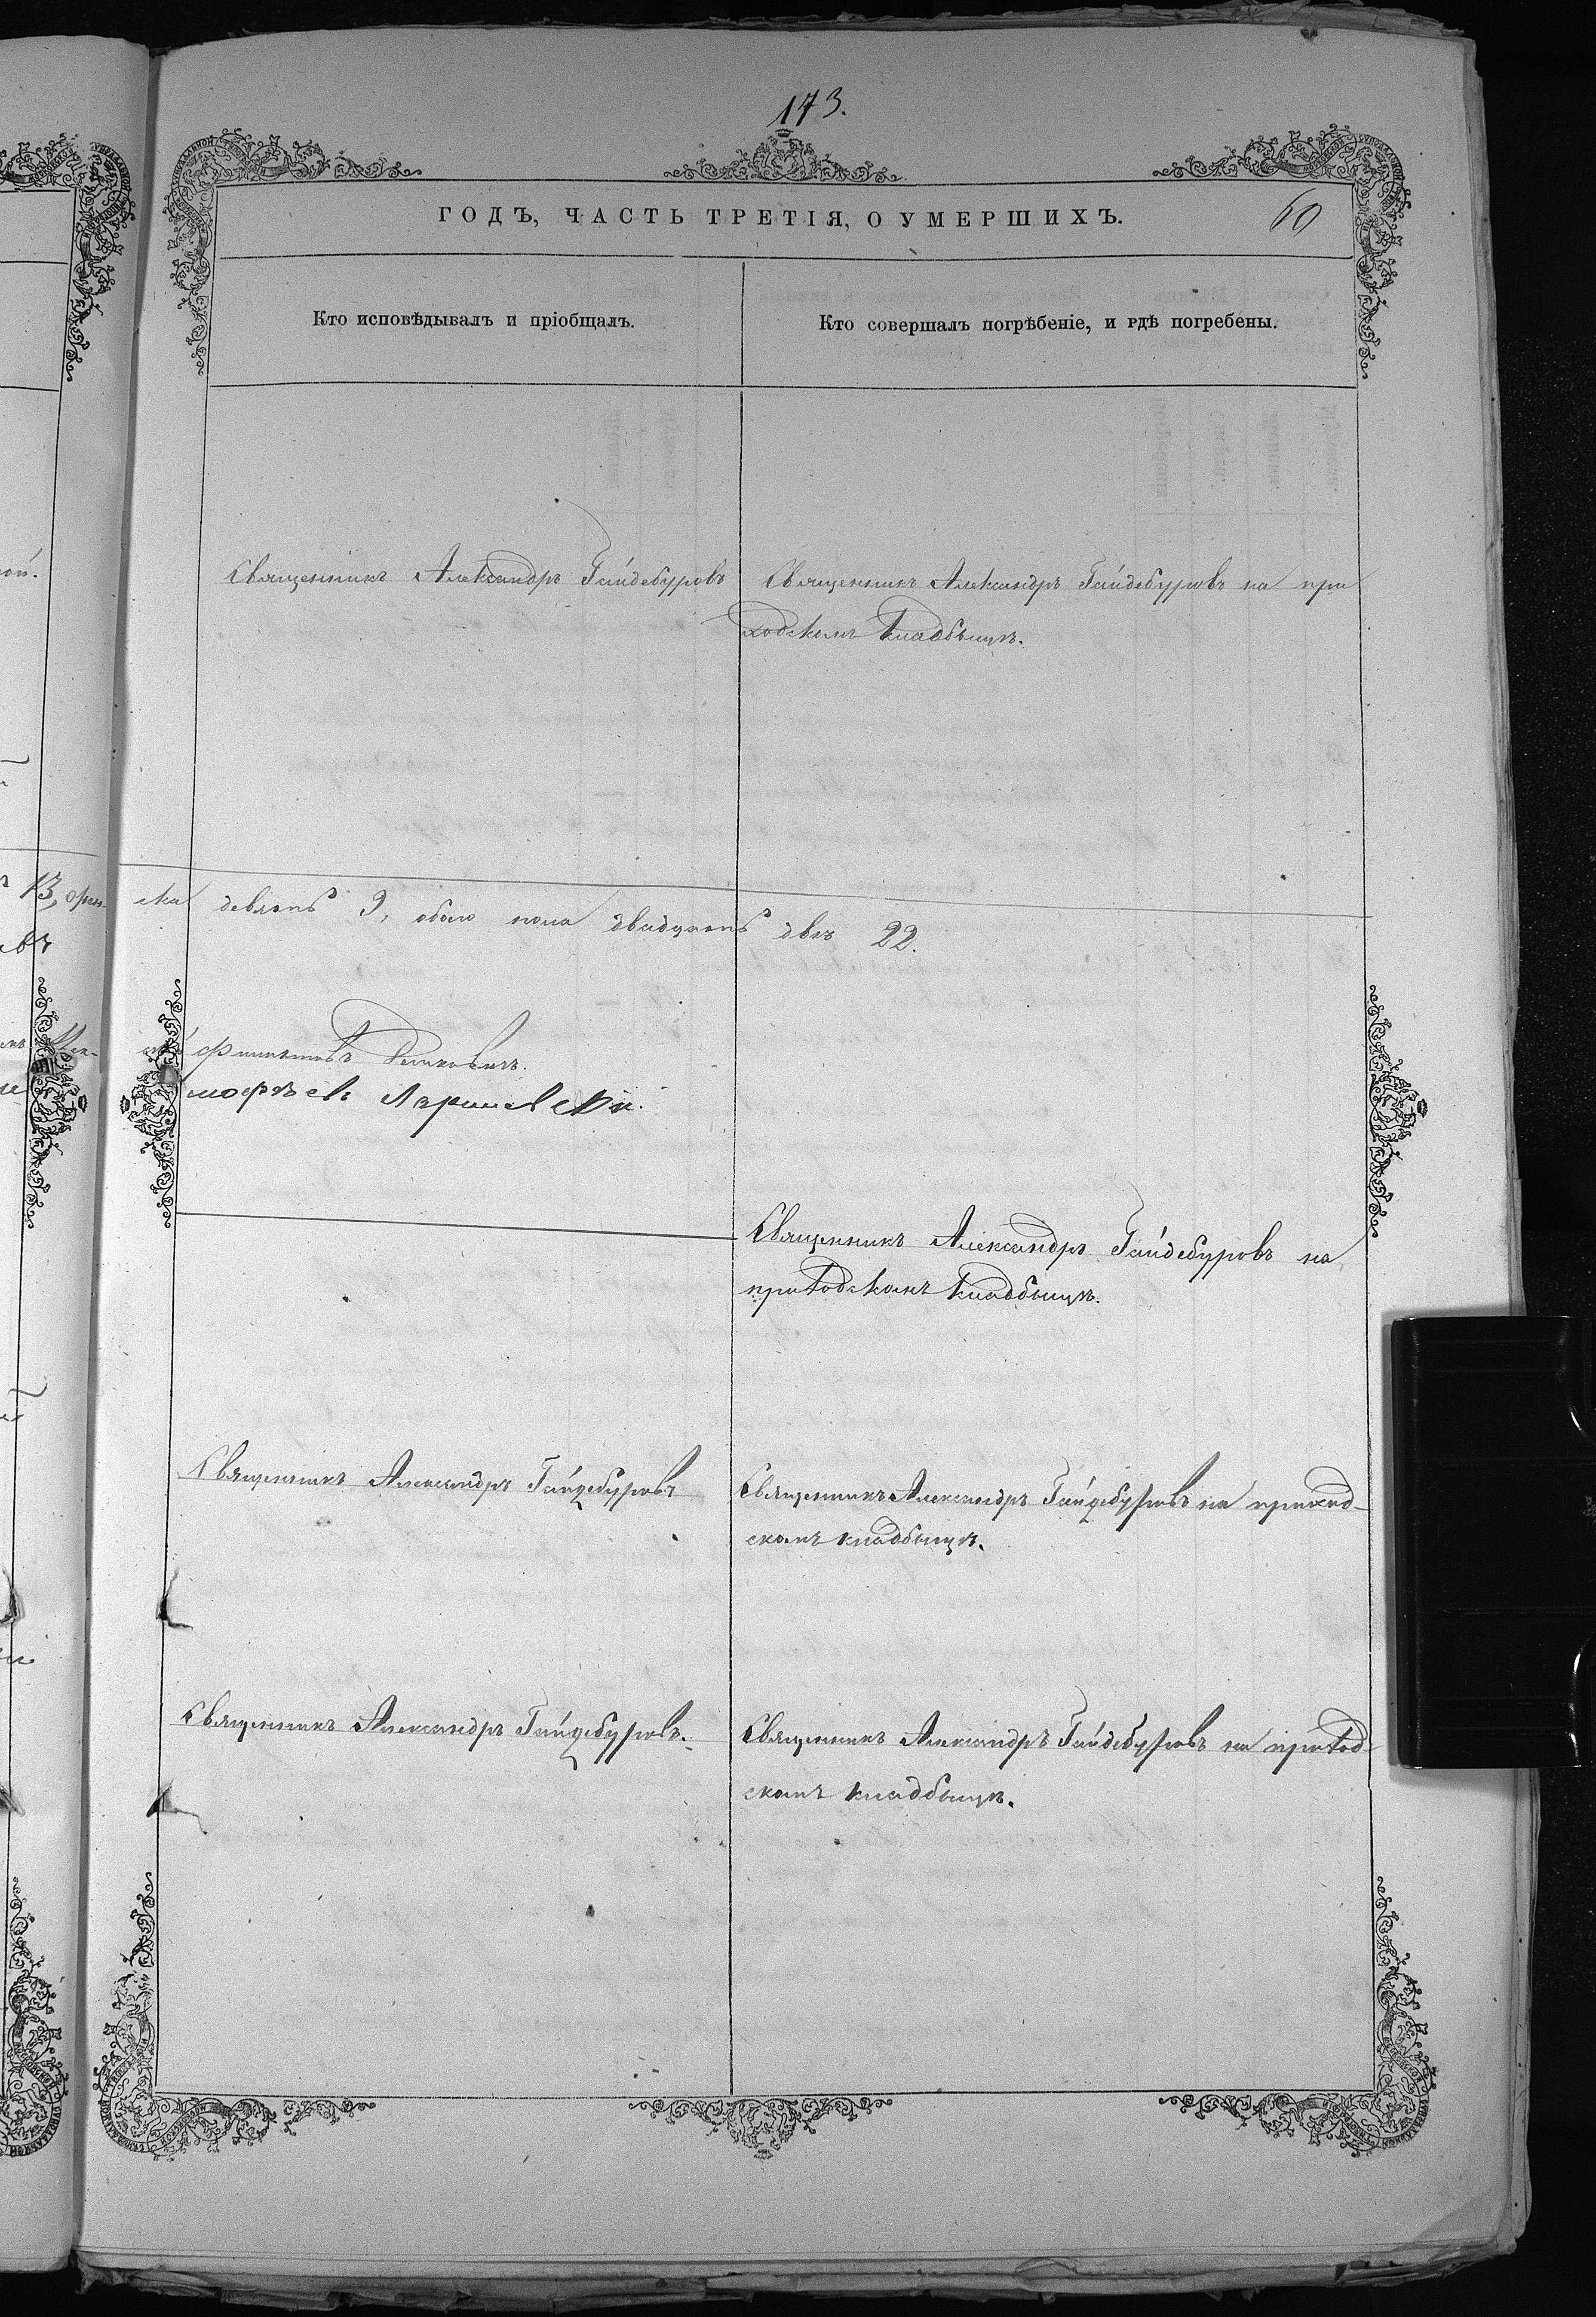 173.
ГОДЪ, ЧАСТЬ ТРЕТІЯ, О УМЕРШИХЪ. 60
Кто исповѣдывалъ и пріобщалъ.
Кто совершалъ погрѣбеніе, и гдѣ погребены.
Священникъ Александръ Гайдебуровъ
Священникъ Александръ Гайдебуровъ на при
ходскомъ кладбыщѣ.
13, жен-
ска девять 9, обоего пола двадцать двѣ 22.
Священникъ Александръ Гайдебуровъ на
приходскомъ кладбыщѣ.
Священникъ Александръ Гайдебуровъ
Священникъ Александръ Гайдебуровъ на приход-
скомъ кладбыщѣ.
Священникъ Александръ Гайдебуровъ.
Священникъ Александръ Гайдебуровъ на приход-
скомъ кладбыщѣ.